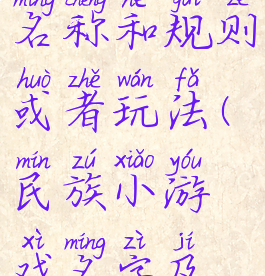 míng chēng hé guī zé
名称和规则
huò zhě wán fǎ
或者玩法(
mín zú xiǎo yóu
民族小游
xì míng zì jí
戏名字及